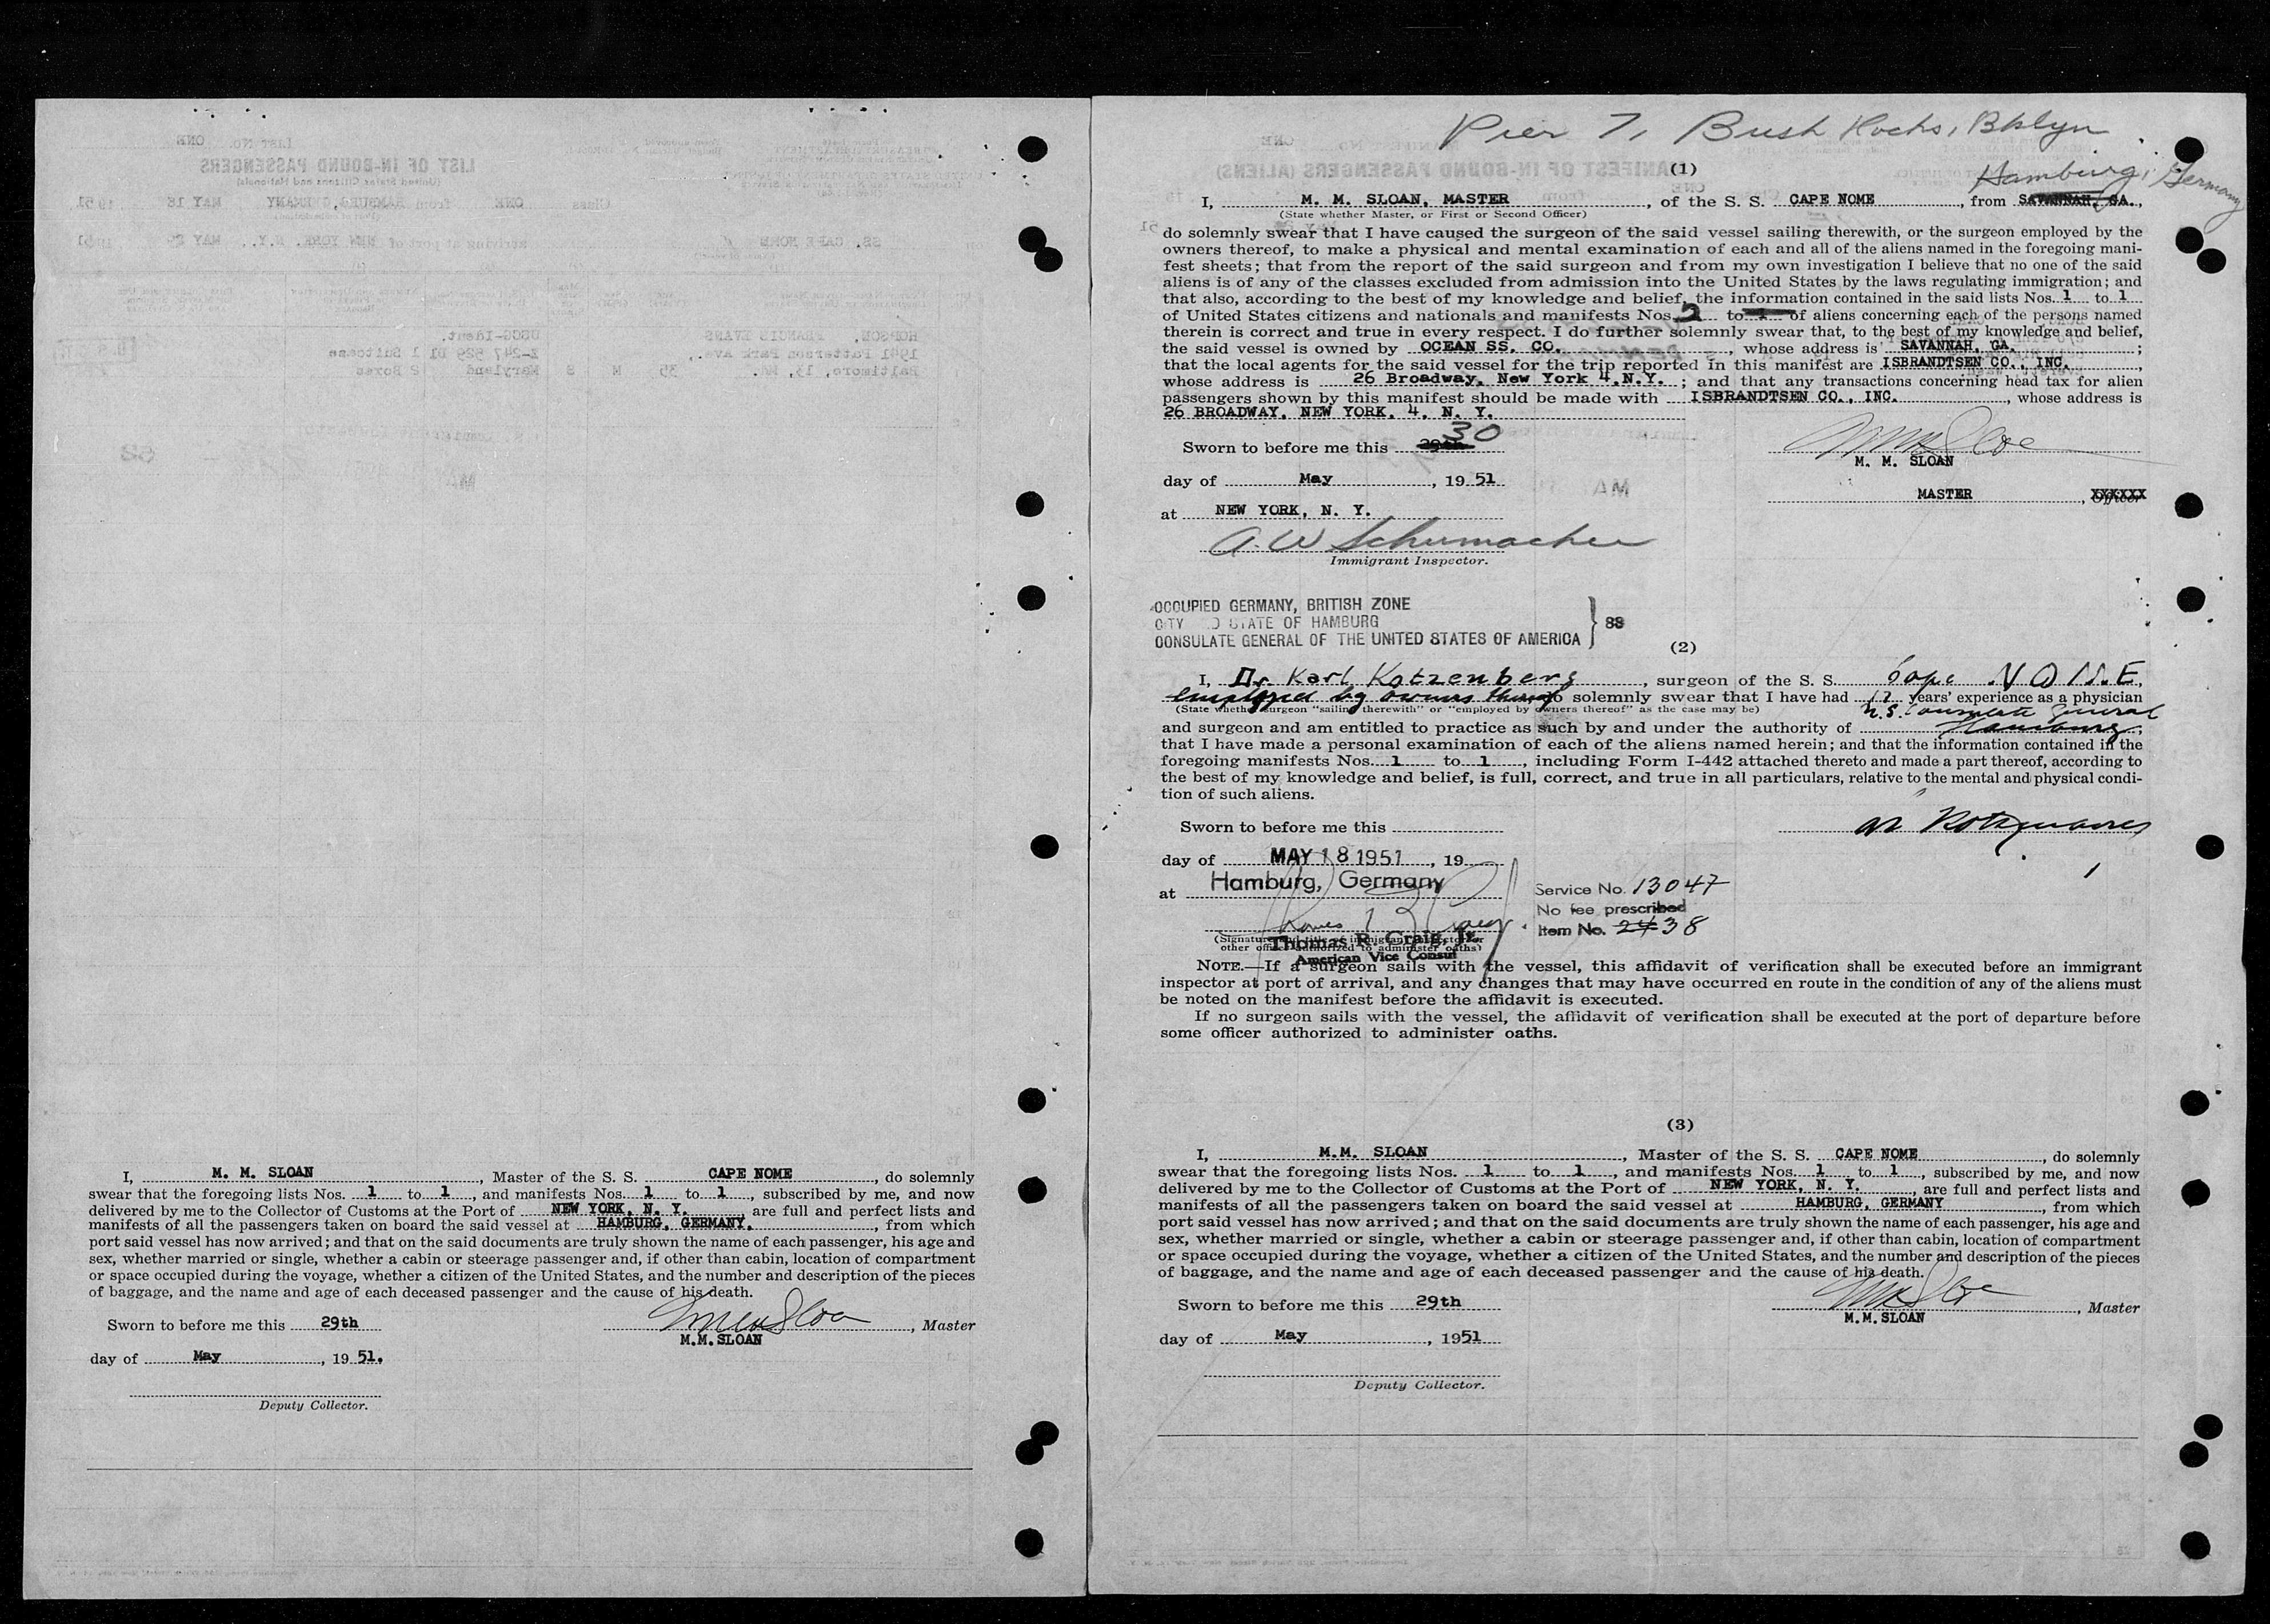 I, M. M. SLOAN, Master of the S. S. CAPE NOME, do solemnly
swear that the foregoing lists Nos. 1 to 1, and manifests Nos. 1 to 1, subscribed by me, and now
delivered by me to the Collector of Customs at the Port of NEW YORK, N. Y. are full and perfect lists and
manifests of all the passengers taken on board the said vessel at HAMBURG, GERMANY., from which
port said vessel has now arrived; and that on the said documents are truly shown the name of each passenger, his age and
sex, whether married or single, whether a cabin or steerage passenger and, if other than cabin, location of compartment
or space occupied during the voyage, whether a citizen of the United States, and the number and description of the pieces
of baggage, and the name and age of each deceased passenger and the cause of his death.
Sworn to before me this 29th
, Master
M.M. SLOAN
day of May, 19 51.
Deputy Collector.
Pier 7, Bush Docks, Bklyn
(1)
Hamburg, Germany
I, M. M. SLOAN, MASTER, of the S. S. CAPE NOME, from SAVANNAH, GA.,
(State whether Master, or First or Second Officer)
do solemnly swear that I have caused the surgeon of the said vessel sailing therewith, or the surgeon employed by the
owners thereof, to make a physical and mental examination of each and all of the aliens named in the foregoing mani-
fest sheets; that from the report of the said surgeon and from my own investigation I believe that no one of the said
aliens is of any of the classes excluded from admission into the United States by the laws regulating immigration; and
that also, according to the best of my knowledge and belief, the information contained in the said lists Nos. 1 to 1
of United States citizens and nationals and manifests Nos. 2 to 1 of aliens concerning each of the persons named
therein is correct and true in every respect. I do further solemnly swear that, to the best of my knowledge and belief,
the said vessel is owned by OCEAN SS. CO., whose address is SAVANNAH, GA.;
that the local agents for the said vessel for the trip reported in this manifest are ISBRANDTSEN CO., INC.,
whose address is 26 Broadway, New York 4, N.Y.; and that any transactions concerning head tax for alien
passengers shown by this manifest should be made with ISBRANDTSEN CO., INC., whose address is
26 BROADWAY, NEW YORK, 4, N. Y.
30
Sworn to before me this 29th
M. M. SLOAN
day of May, 19 51
MASTER, Officer
at NEW YORK, N. Y.
A. W Schumacher
Immigrant Inspector.
OCCUPIED GERMANY, BRITISH ZONE
CITY D STATE OF HAMBURG
CONSULATE GENERAL OF THE UNITED STATES OF AMERICA } SS
(2)
I, Dr. Karl Kotzenberg, surgeon of the S. S. Cape NOME,
employed by owners thereof do solemnly swear that I have had 17 years' experience as a physician
(State whether surgeon "sailing therewith" or "employed by owners thereof" as the case may be)
U.S. Consulate General
and surgeon and am entitled to practice as such by and under the authority of Hamburg;
that I have made a personal examination of each of the aliens named herein; and that the information contained in the
foregoing manifests Nos. 1 to 1, including Form I-442 attached thereto and made a part thereof, according to
the best of my knowledge and belief, is full, correct, and true in all particulars, relative to the mental and physical condi-
tion of such aliens.
Sworn to before me this
day of MAY 18 1951, 19
at Hamburg, Germany
Service No. 13047
No fee prescribed
Item No. 24 38
(Signature and title of immigrant inspector or
other officer authorized to administer oaths)
Thomas R. Craig, Jr.
American Vice Consul
NOTE.—If a surgeon sails with the vessel, this affidavit of verification shall be executed before an immigrant
inspector at port of arrival, and any changes that may have occurred en route in the condition of any of the aliens must
be noted on the manifest before the affidavit is executed.
If no surgeon sails with the vessel, the affidavit of verification shall be executed at the port of departure before
some officer authorized to administer oaths.
(3)
I, M.M. SLOAN, Master of the S. S. CAPE NOME, do solemnly
swear that the foregoing lists Nos. 1 to 1, and manifests Nos. 1 to 1, subscribed by me, and now
delivered by me to the Collector of Customs at the Port of NEW YORK, N. Y., are full and perfect lists and
manifests of all the passengers taken on board the said vessel at HAMBURG, GERMANY, from which
port said vessel has now arrived; and that on the said documents are truly shown the name of each passenger, his age and
sex, whether married or single, whether a cabin or steerage passenger and, if other than cabin, location of compartment
or space occupied during the voyage, whether a citizen of the United States, and the number and description of the pieces
of baggage, and the name and age of each deceased passenger and the cause of his death.
Sworn to before me this 29th
, Master
M.M. SLOAN
day of May, 1951
Deputy Collector.